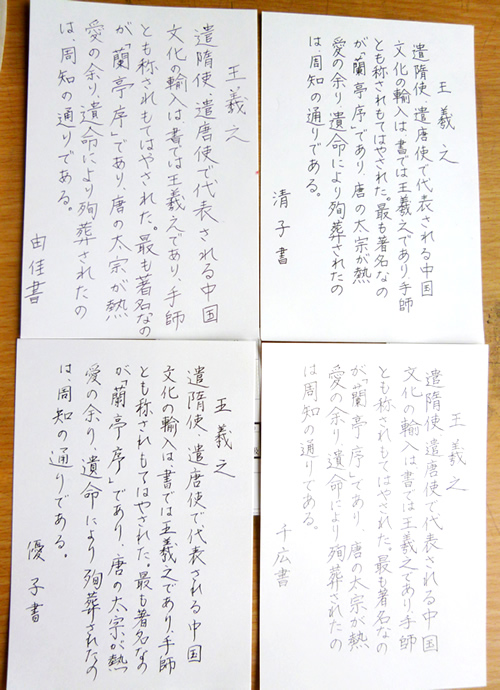 王羲之
遣隋使、遣唐使で代表される中国
文化の輸入は、書では王羲之であり、手師
とも称されもてはやされた。最も著名なの
が「蘭亭序」であり、唐の太宗が熱
愛の余り、遺命により殉葬されたの
は、周知の通りである。
清子書
王羲之
遣隋使、遣唐使で代表される中国
文化の輸入は、書では王羲之であり、手師
とも称されもてはやされた。最も著名なの
が「蘭亭序」であり、唐の太宗が熱
愛の余り、遺命により殉葬されたの
は、周知の通りである。
由佳書
王羲之
遣隋使、遣唐使で代表される中国
文化の輸入は、書では王羲之であり、手師
とも称されもてはやされた。最も著名なの
が「蘭亭序」であり、唐の太宗が熱
愛の余り、遺命により殉葬されたの
は、周知の通りである。
千広書
王羲之
遣隋使、遣唐使で代表される中国
文化の輸入は、書では王羲之であり、手師
とも称されもてはやされた。最も著名なの
が「蘭亭序」であり、唐の太宗が熱
愛の余り、遺命により殉葬されたの
は、周知の通りである。
優子書